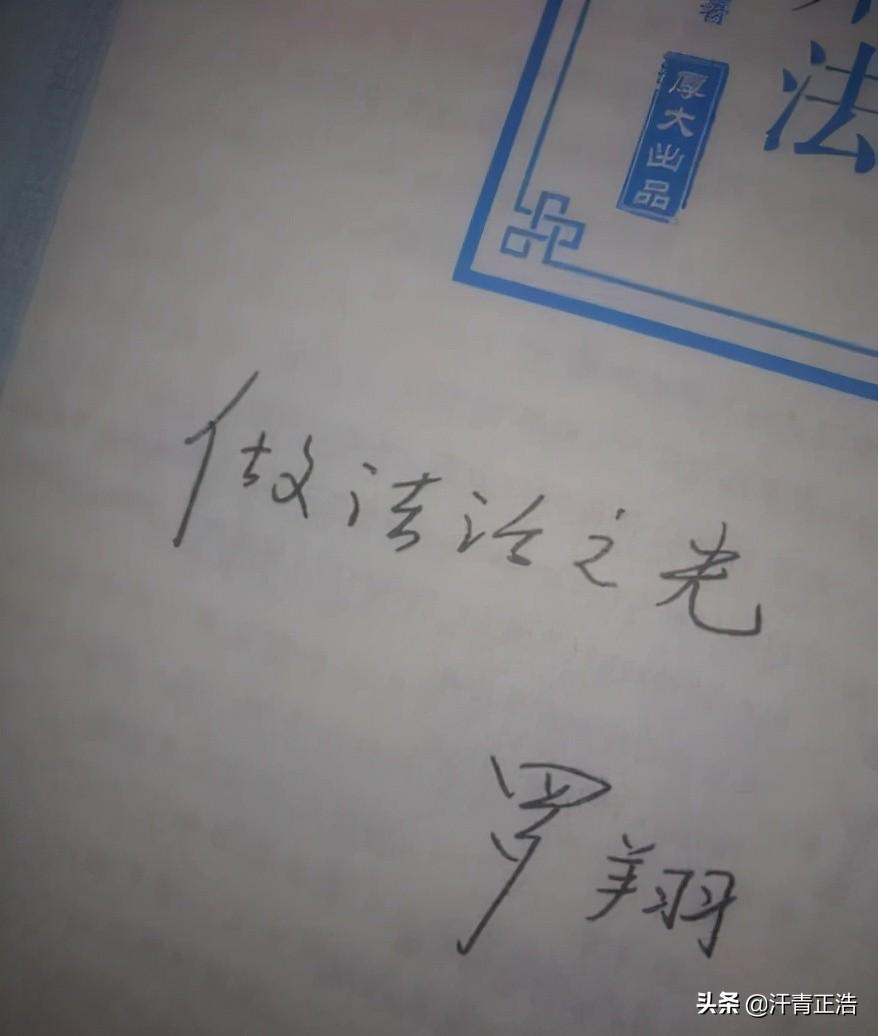 著
厚大出品
法
做法治之光
罗翔
头条 @汗青正浩